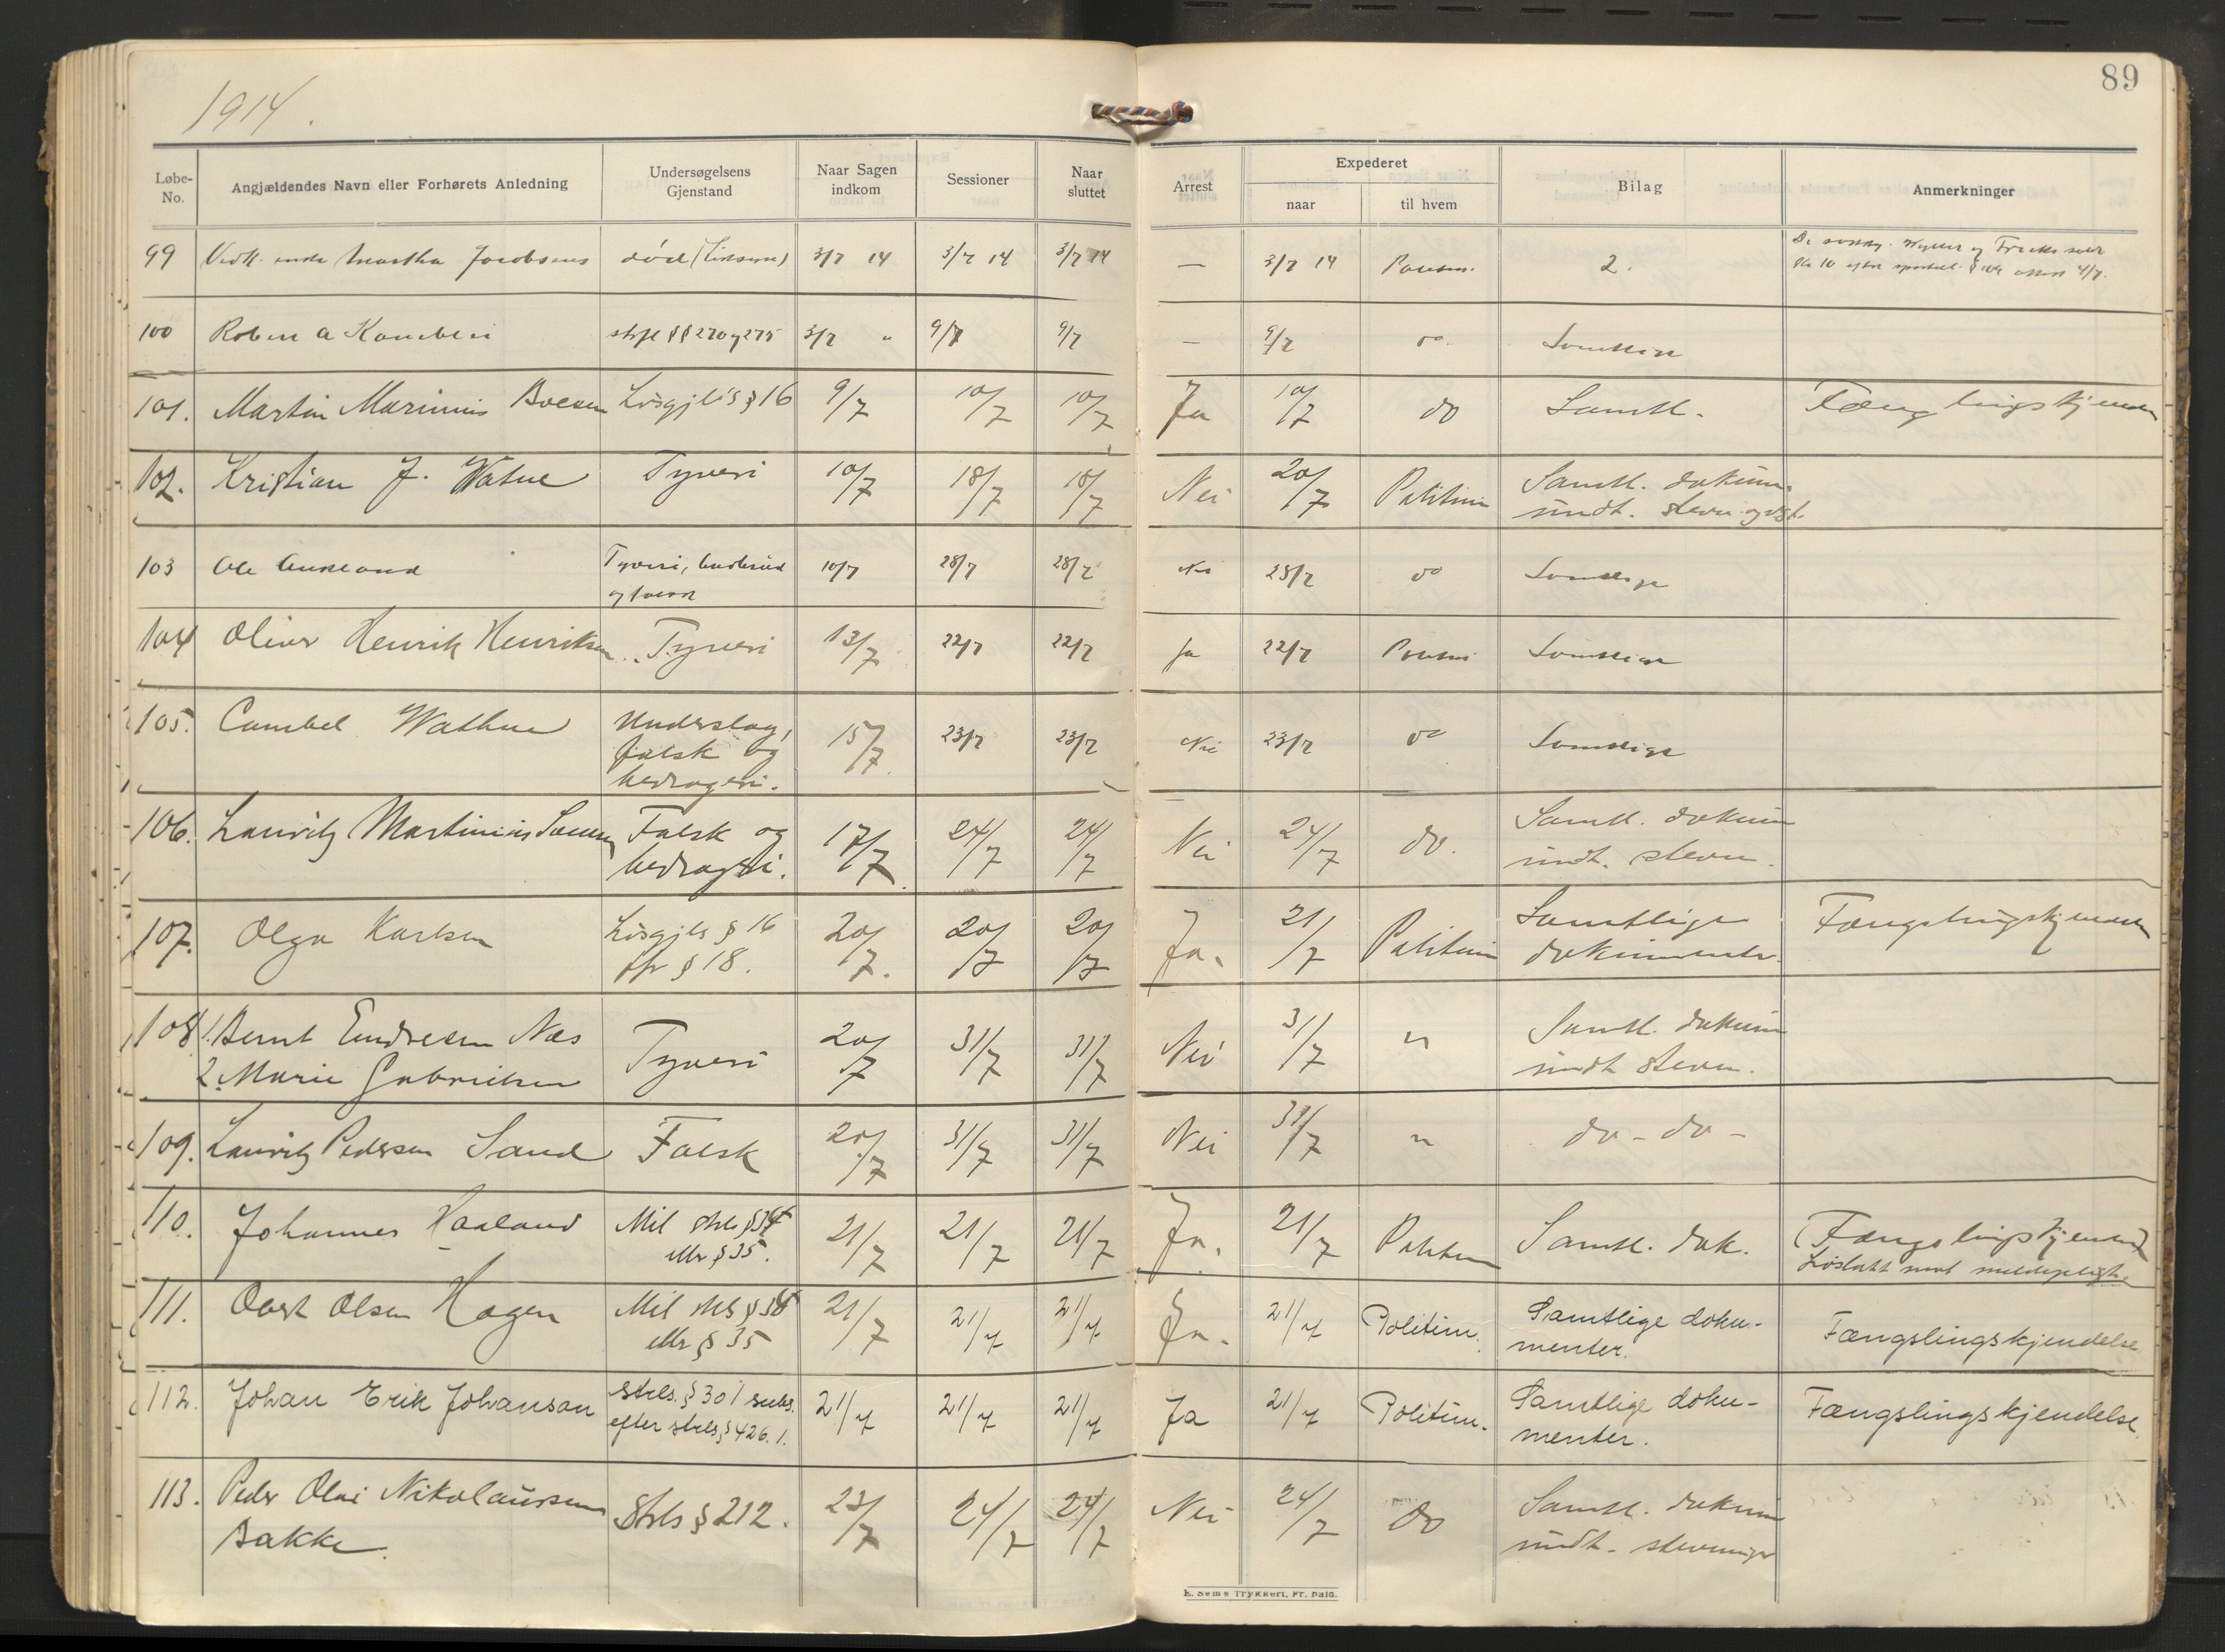 1914.
89
Løbe-No. Angjældendes Navn eller Forhørets Anledning Undersøgelsens Gjenstand Naar Sagen indkom Sessioner Naar sluttet Arrest Expederet naar til hvem Bilag Anmerkninger
99 Martha Jacobsens død 3/7 14 3/7 14 3/7 14 — 3/7 14 2.
100 3/7 " 9/7 9/7 — 9/7 do.
101. Martin Marinius Boesen Løsgjl's § 16 9/7 10/7 10/7 Ja 10/7 do Samtl. Fængslingskjendelse
102. Kristian J. Watne Tyveri 10/7 18/7 18/7 Nei 20/7 Politim Samtl. dokum.
undt. stevn.
103 Ole Aukland Tyveri,
10/7 28/7 28/7 Nei 28/7 do Samtlige
104 Oliver Henrik Henriksen Tyveri 13/7 22/7 22/7 Ja 22/7 Politim Samtlige
105. Cambel Wathne Underslag,
falsk og
bedrageri.
15/7 23/7 23/7 Nei 23/7 do Samtlige
106. Lauritz Martinius Falsk og
bedrageri.
17/7 24/7 24/7 Nei 24/7 do. Samtl. dokum
undt. stevn.
107. Olga Karlsen Løsgjls § 16
jfr § 18.
20/7. 20/7 20/7 Ja. 21/7 Politim Samtlige
dokumenter.
Fængslingskjendelse
108 1. Bernt Endresen Næs
2. Marie Gabrielsen
Tyveri 20/7 31/7 31/7 Nei 31/7 " Samtl. dokum
undt stevn.
109. Lauritz Pedersen Sand Falsk 20/7 31/7 31/7 Nei 31/7 " do – do –
110. Johannes Haaland Mil strls § 34
ellr § 35.
21/7 21/7 21/7 Ja. 21/7 Politim Samtl. dok. (Fængslingskjendelse)
Løslatt mot meldepligt.
111. Olsen Hagen Mil strls § 34
ellr § 35
21/7 21/7 21/7 Ja. 21/7 Politim. Samtlige doku-
menter.
Fængslingskjendelse
112. Johan Erik Johanson strls. § 301 subs.
efter strls, § 426. 1.
21/7 21/7 21/7 Ja 21/7 Politim. Samtlige doku-
menter.
Fængslingskjendelse
113. Peder Olai Nikolaussen
Bakke.
Strls § 212. 23/7 24/7 24/7 Nei 24/7 do Samtl. dokum
undt. stevninger
E. Sems Trykkeri, Fr. hald.